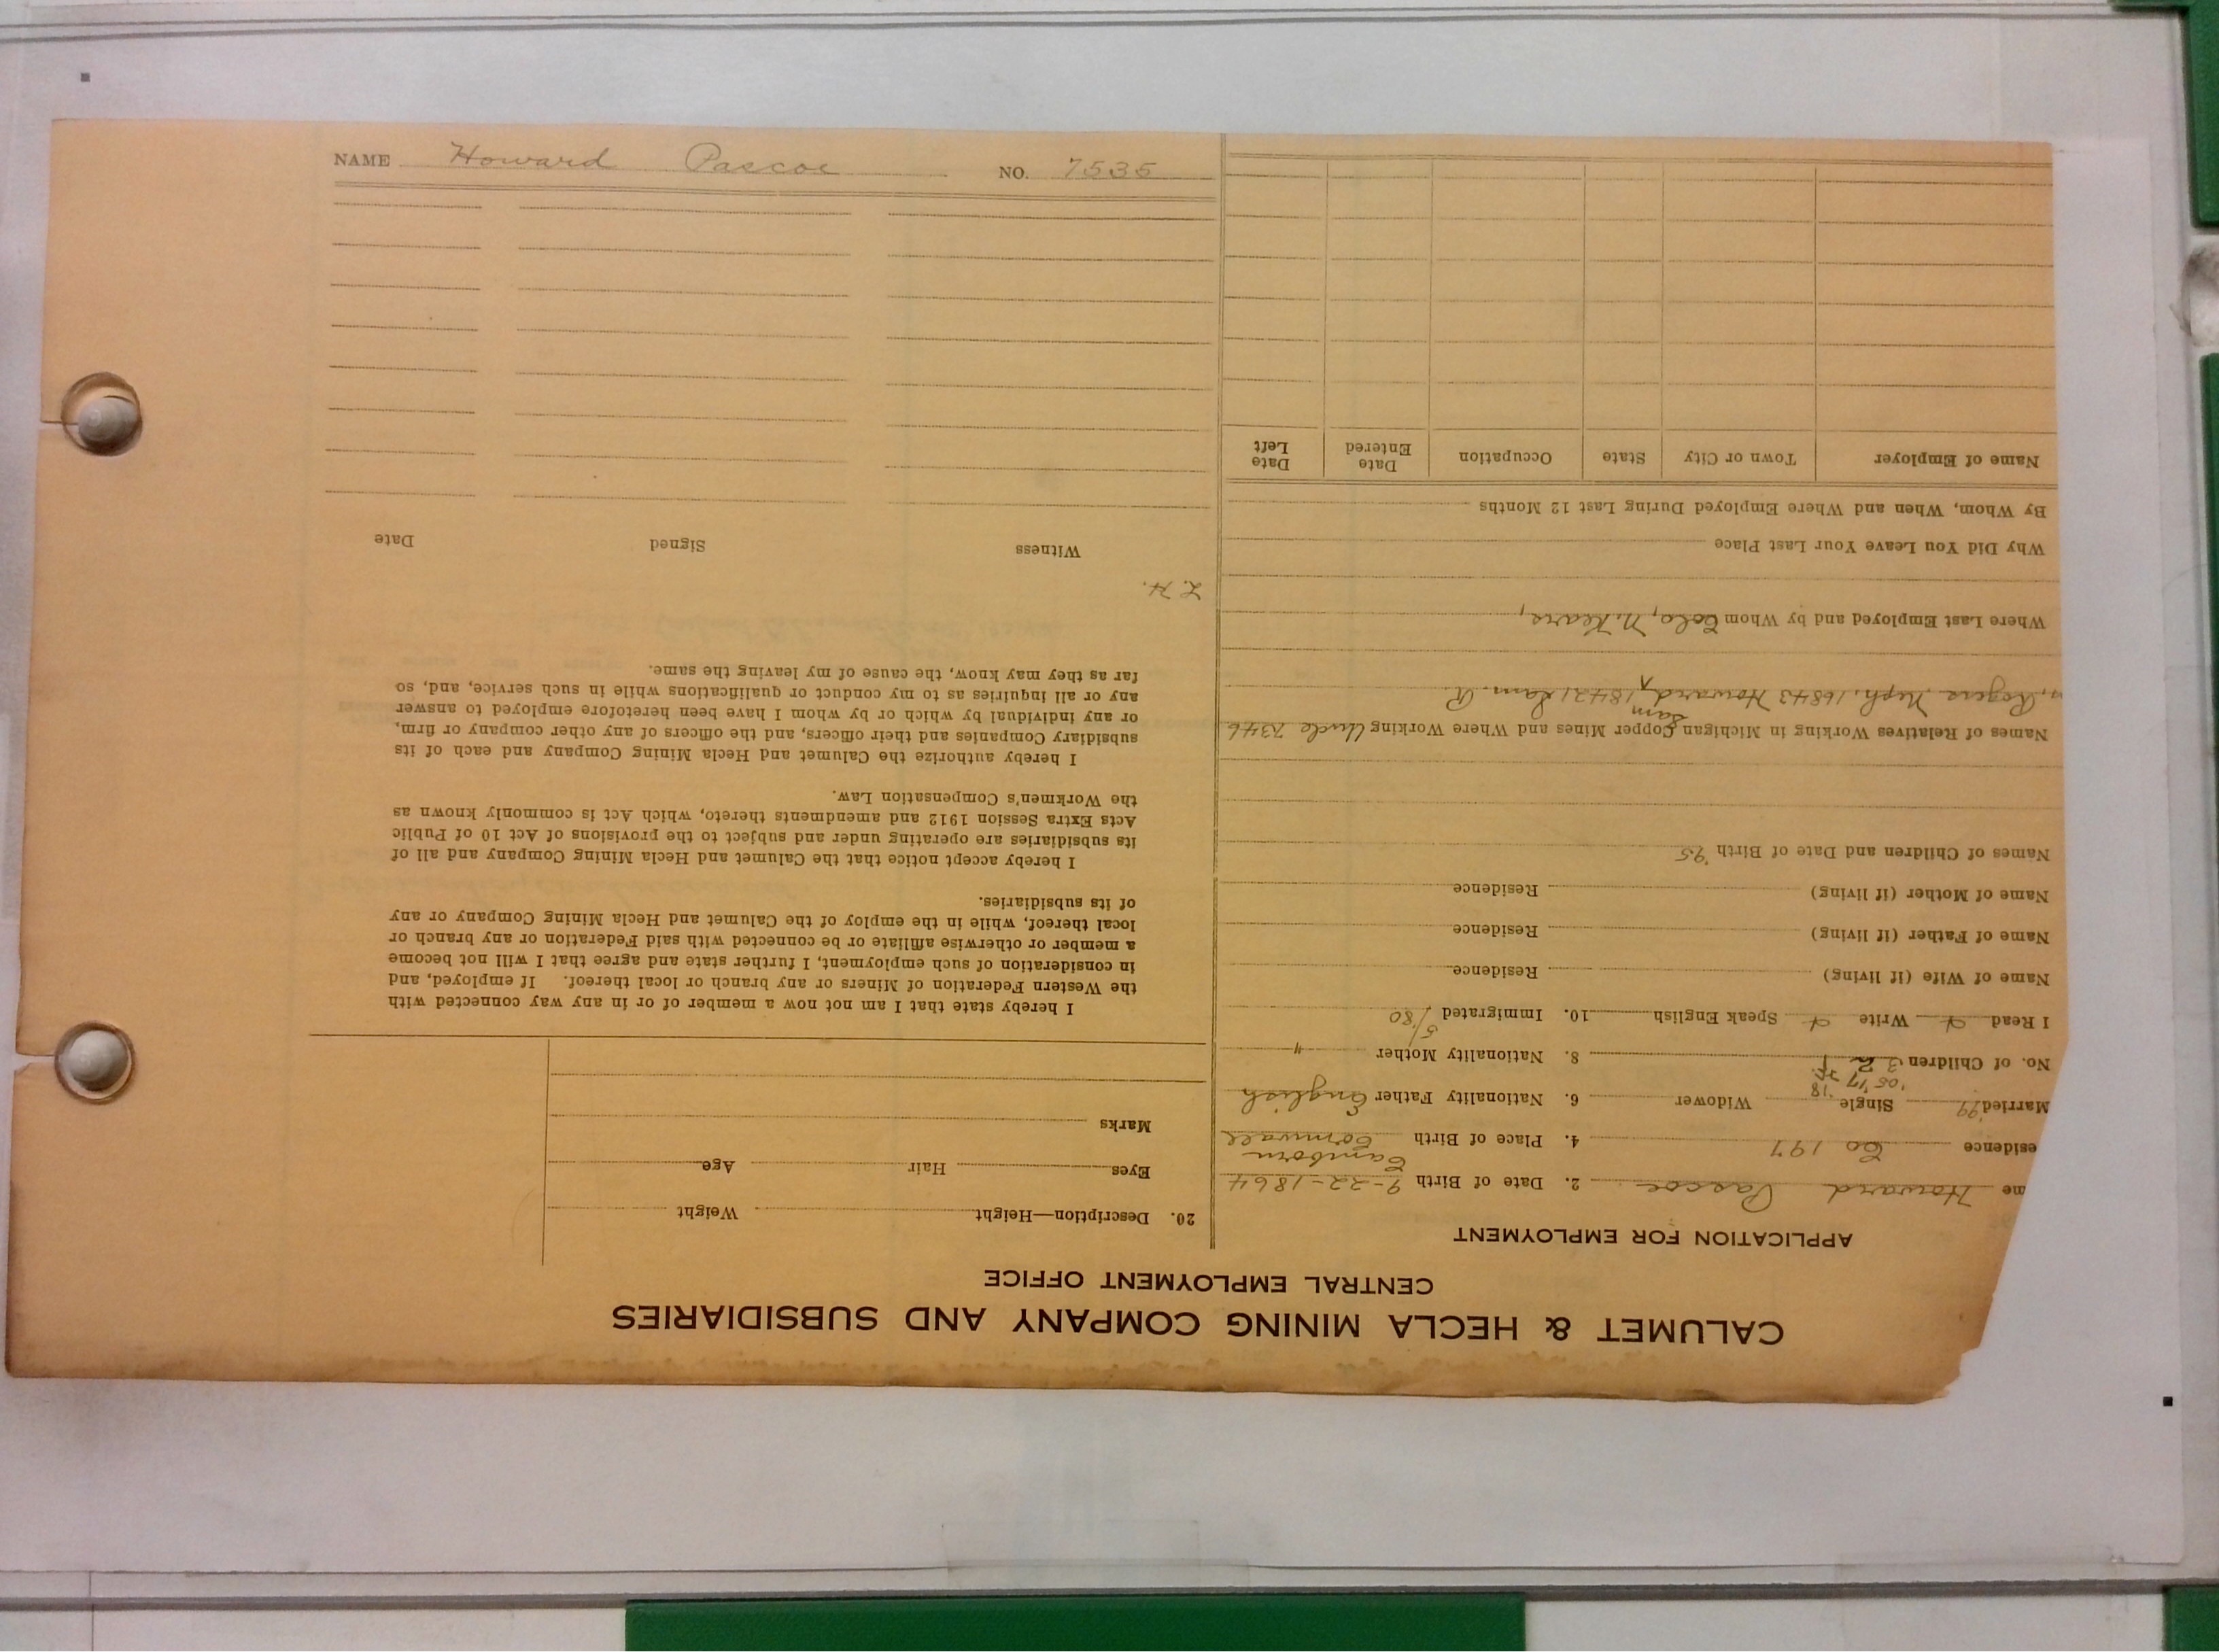 CALUMET & HECLA MINING COMPANY AND SUBSIDIARIES
CENTRAL EMPLOYMENT OFFICE
APPLICATION FOR EMPLOYMENT
me Howard Pascoe 2. Date of Birth 9-22-1864
esidence Co 197 4. Place of Birth Camborn Cornwall
Married '99 Single Widower 6. Nationality Father English
'05 '17 '18
No. of Children 3 2 8. Nationality Mother "
I Read Write Speak English 10. Immigrated 5/80
Name of Wife (if living) Residence
Name of Father (if living) Residence
Name of Mother (if living) Residence
Names of Children and Date of Birth '95
Names of Relatives Working in Michigan Copper Mines and Where Working Uncle 7346
Rogers Neph. 16843 Howard Sam 18421 Sam. R.
Where Last Employed and by Whom Colo, N. Kears,
Why Did You Leave Your Last Place
By Whom, When and Where Employed During Last 12 Months
Name of Employer Town or City State Occupation Date Entered Date Left
20. Description—Height Weight
Eyes Hair Age
Marks
I hereby state that I am not now a member of or in any way connected with
the Western Federation of Miners or any branch or local thereof. If employed, and
in consideration of such employment, I further state and agree that I will not become
a member or otherwise affiliate or be connected with said Federation or any branch or
local thereof, while in the employ of the Calumet and Hecla Mining Company or any
of its subsidiaries.
I hereby accept notice that the Calumet and Hecla Mining Company and all of
its subsidiaries are operating under and subject to the provisions of Act 10 of Public
Acts Extra Session 1912 and amendments thereto, which Act is commonly known as
the Workmen's Compensation Law.
I hereby authorize the Calumet and Hecla Mining Company and each of its
subsidiary Companies and their officers, and the officers of any other company or firm,
or any individual by which or by whom I have been heretofore employed to answer
any or all inquiries as to my conduct or qualifications while in such service, and, so
far as they may know, the cause of my leaving the same.
Z. H.
Witness Signed Date
NAME Howard Pascoe NO. 7535